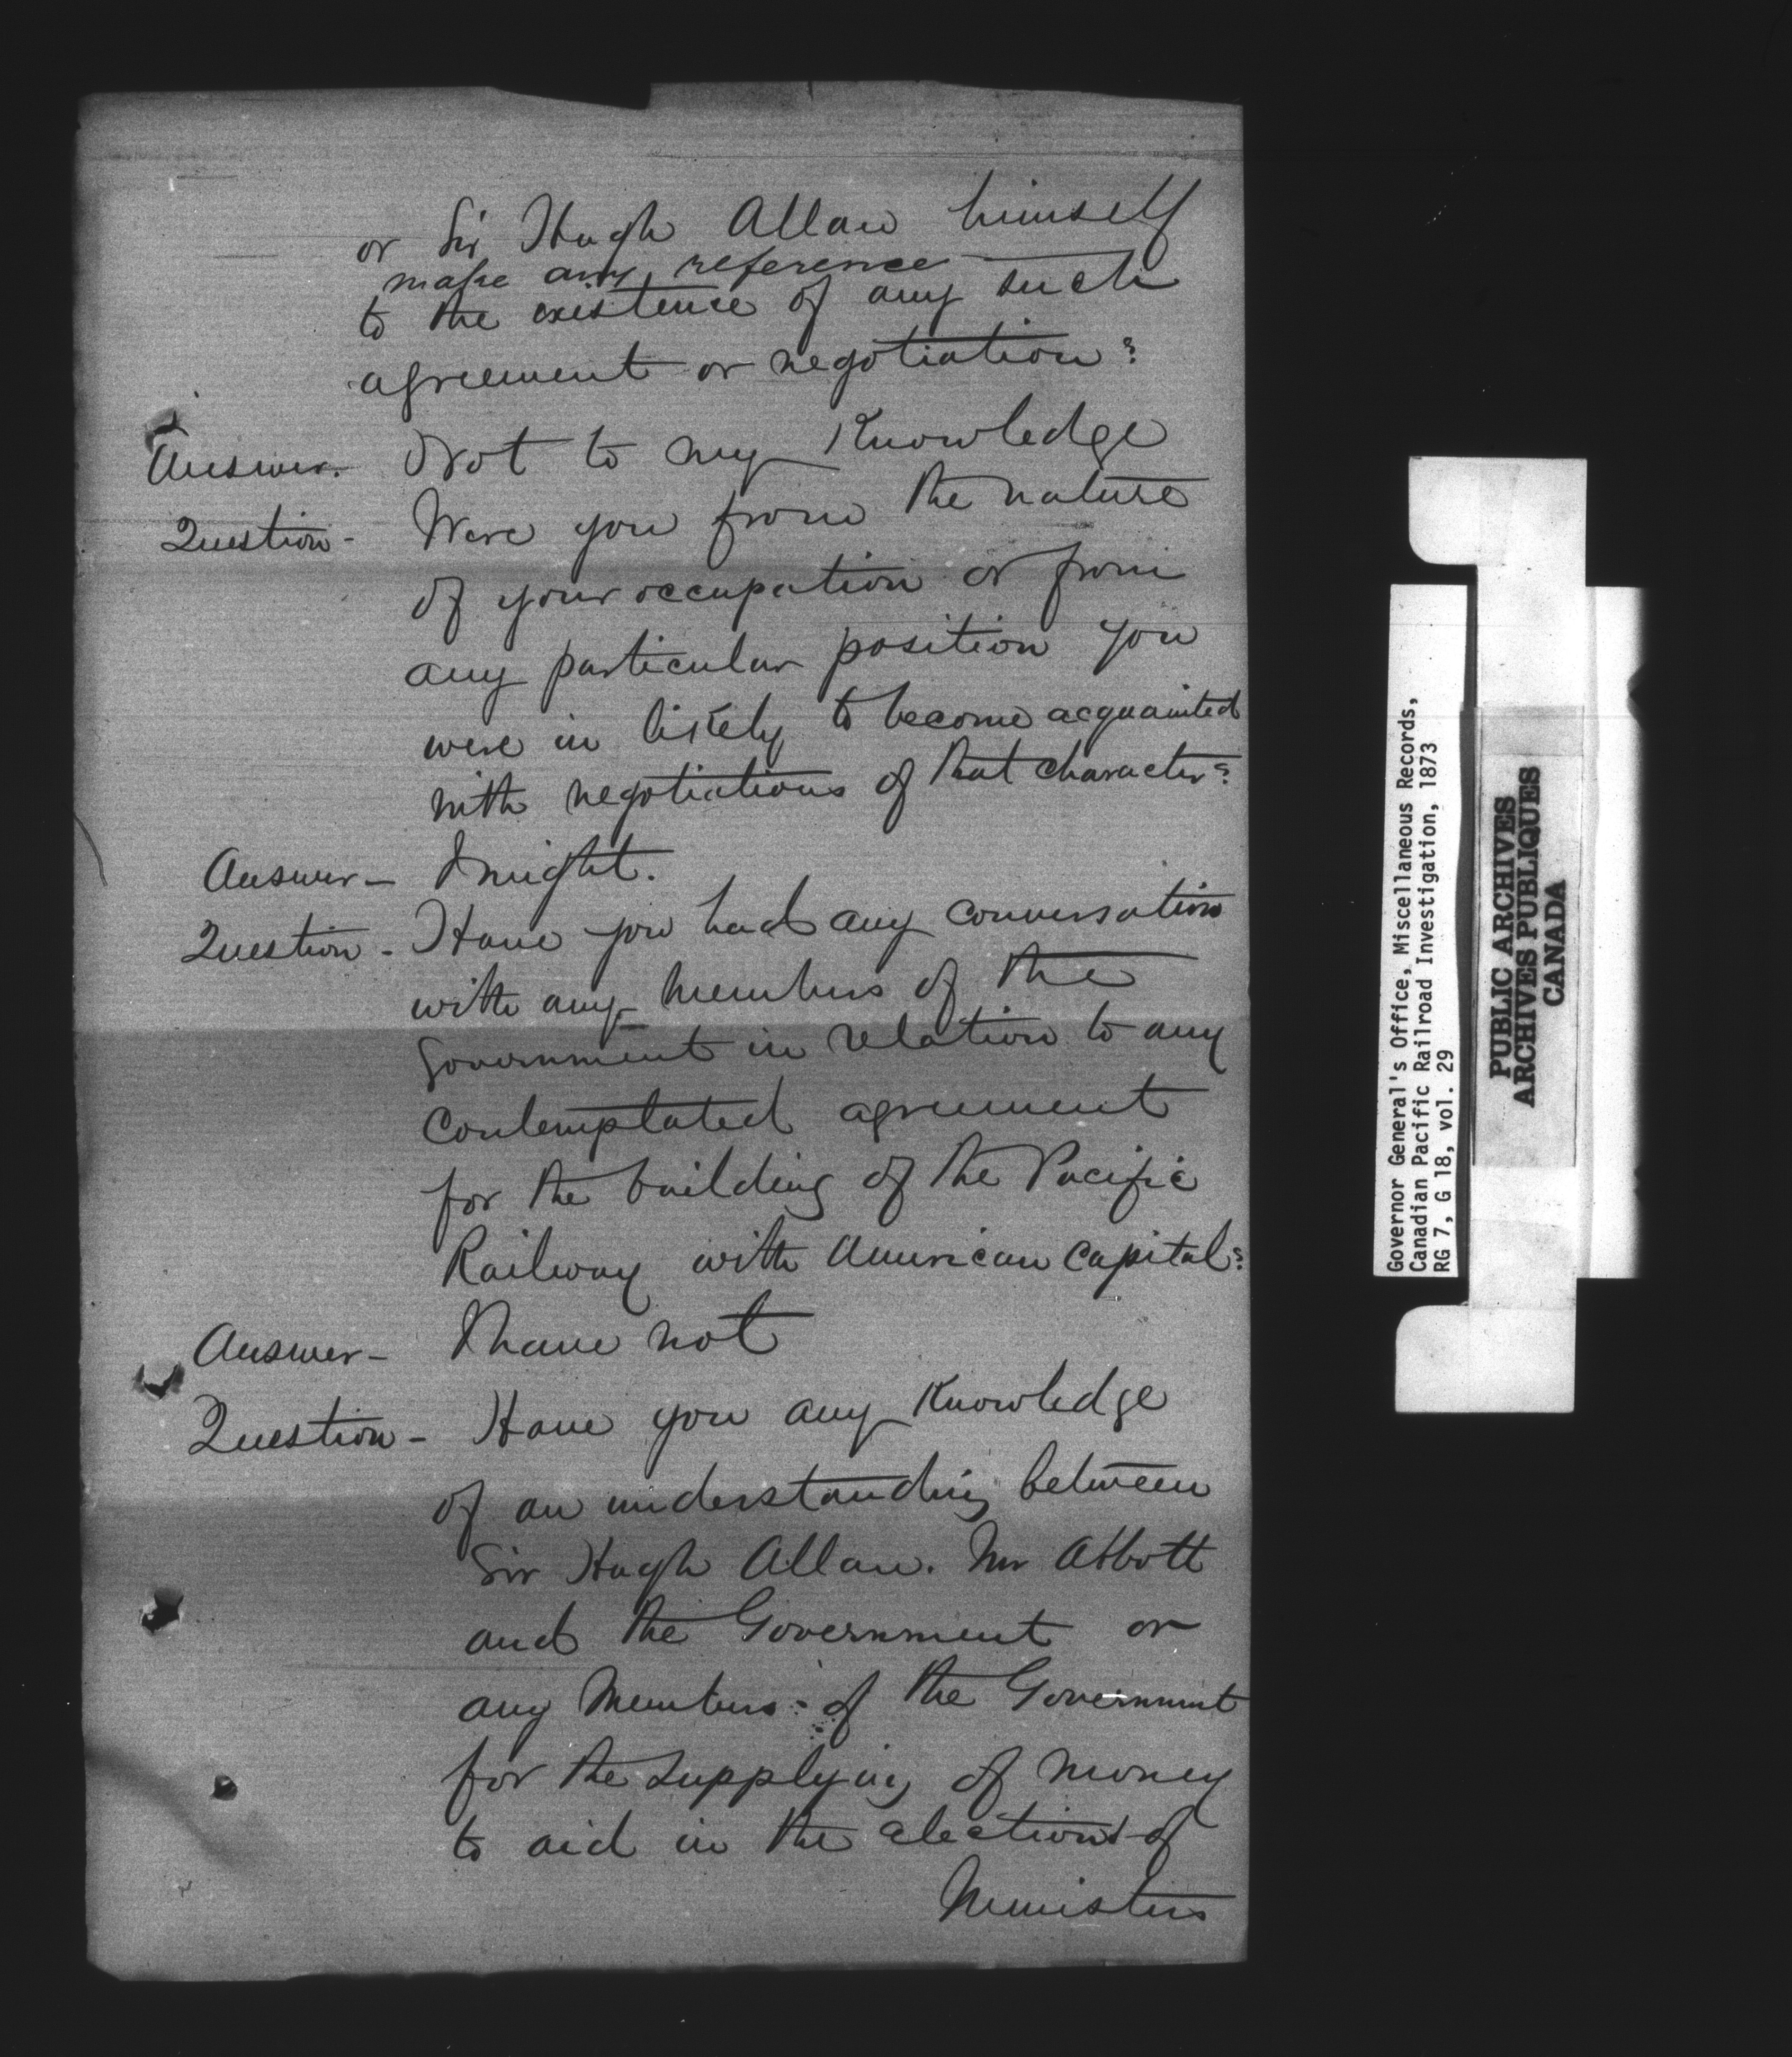 or Sir Hugh Allan himself
make any reference
to the existence of any such
agreement or negotiation?
Answer. Not to my Knowledge
Question - Were you from the nature
of your occupation or from
any particular position you
were in likely to become acquainted
with negotiations of that character?
Answer - I might.
Question - Have you had any conversation
with any members of the
Government in relation to any
contemplated agreement
for the building of the Pacific
Railway with American Capital?
Answer - I have not
Question - Have you any Knowledge
of an understanding between
Sir Hugh Allan. Mr Abbott
and the Government or
any Members of the Government
for the supplying of money
to aid in the elections of
Ministers
Governor General's Office, Miscellaneous Records,
Canadian Pacific Railroad Investigation, 1873
RG 7, G 18, vol. 29
PUBLIC ARCHIVES
ARCHIVES PUBLIQUES
CANADA